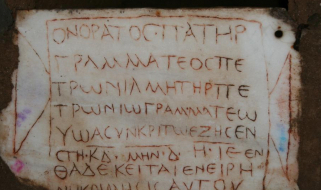 ΟΝΟΡΑΤΟϹΠΑΤΗΡ
ΓΡΑΜΜΑΤΕΟϹΠΕ
ΤΡωΝΙΑΜΗΤΗΡΠΕ
ΤΡωΝΙωΓΡΑΜΜΑΤΕω
ΥωΑϹΥΝΚΡΙΤωΕΖΗϹΕΝ
ϹΤΗ·ΚΔ·ΜΗΝ·Δ·Η·ΙΕ·ΕΝ
ΘΑΔΕΚΕΙΤΑΙΕΝΕΙΡΗ
ΑΥΤΟΥ